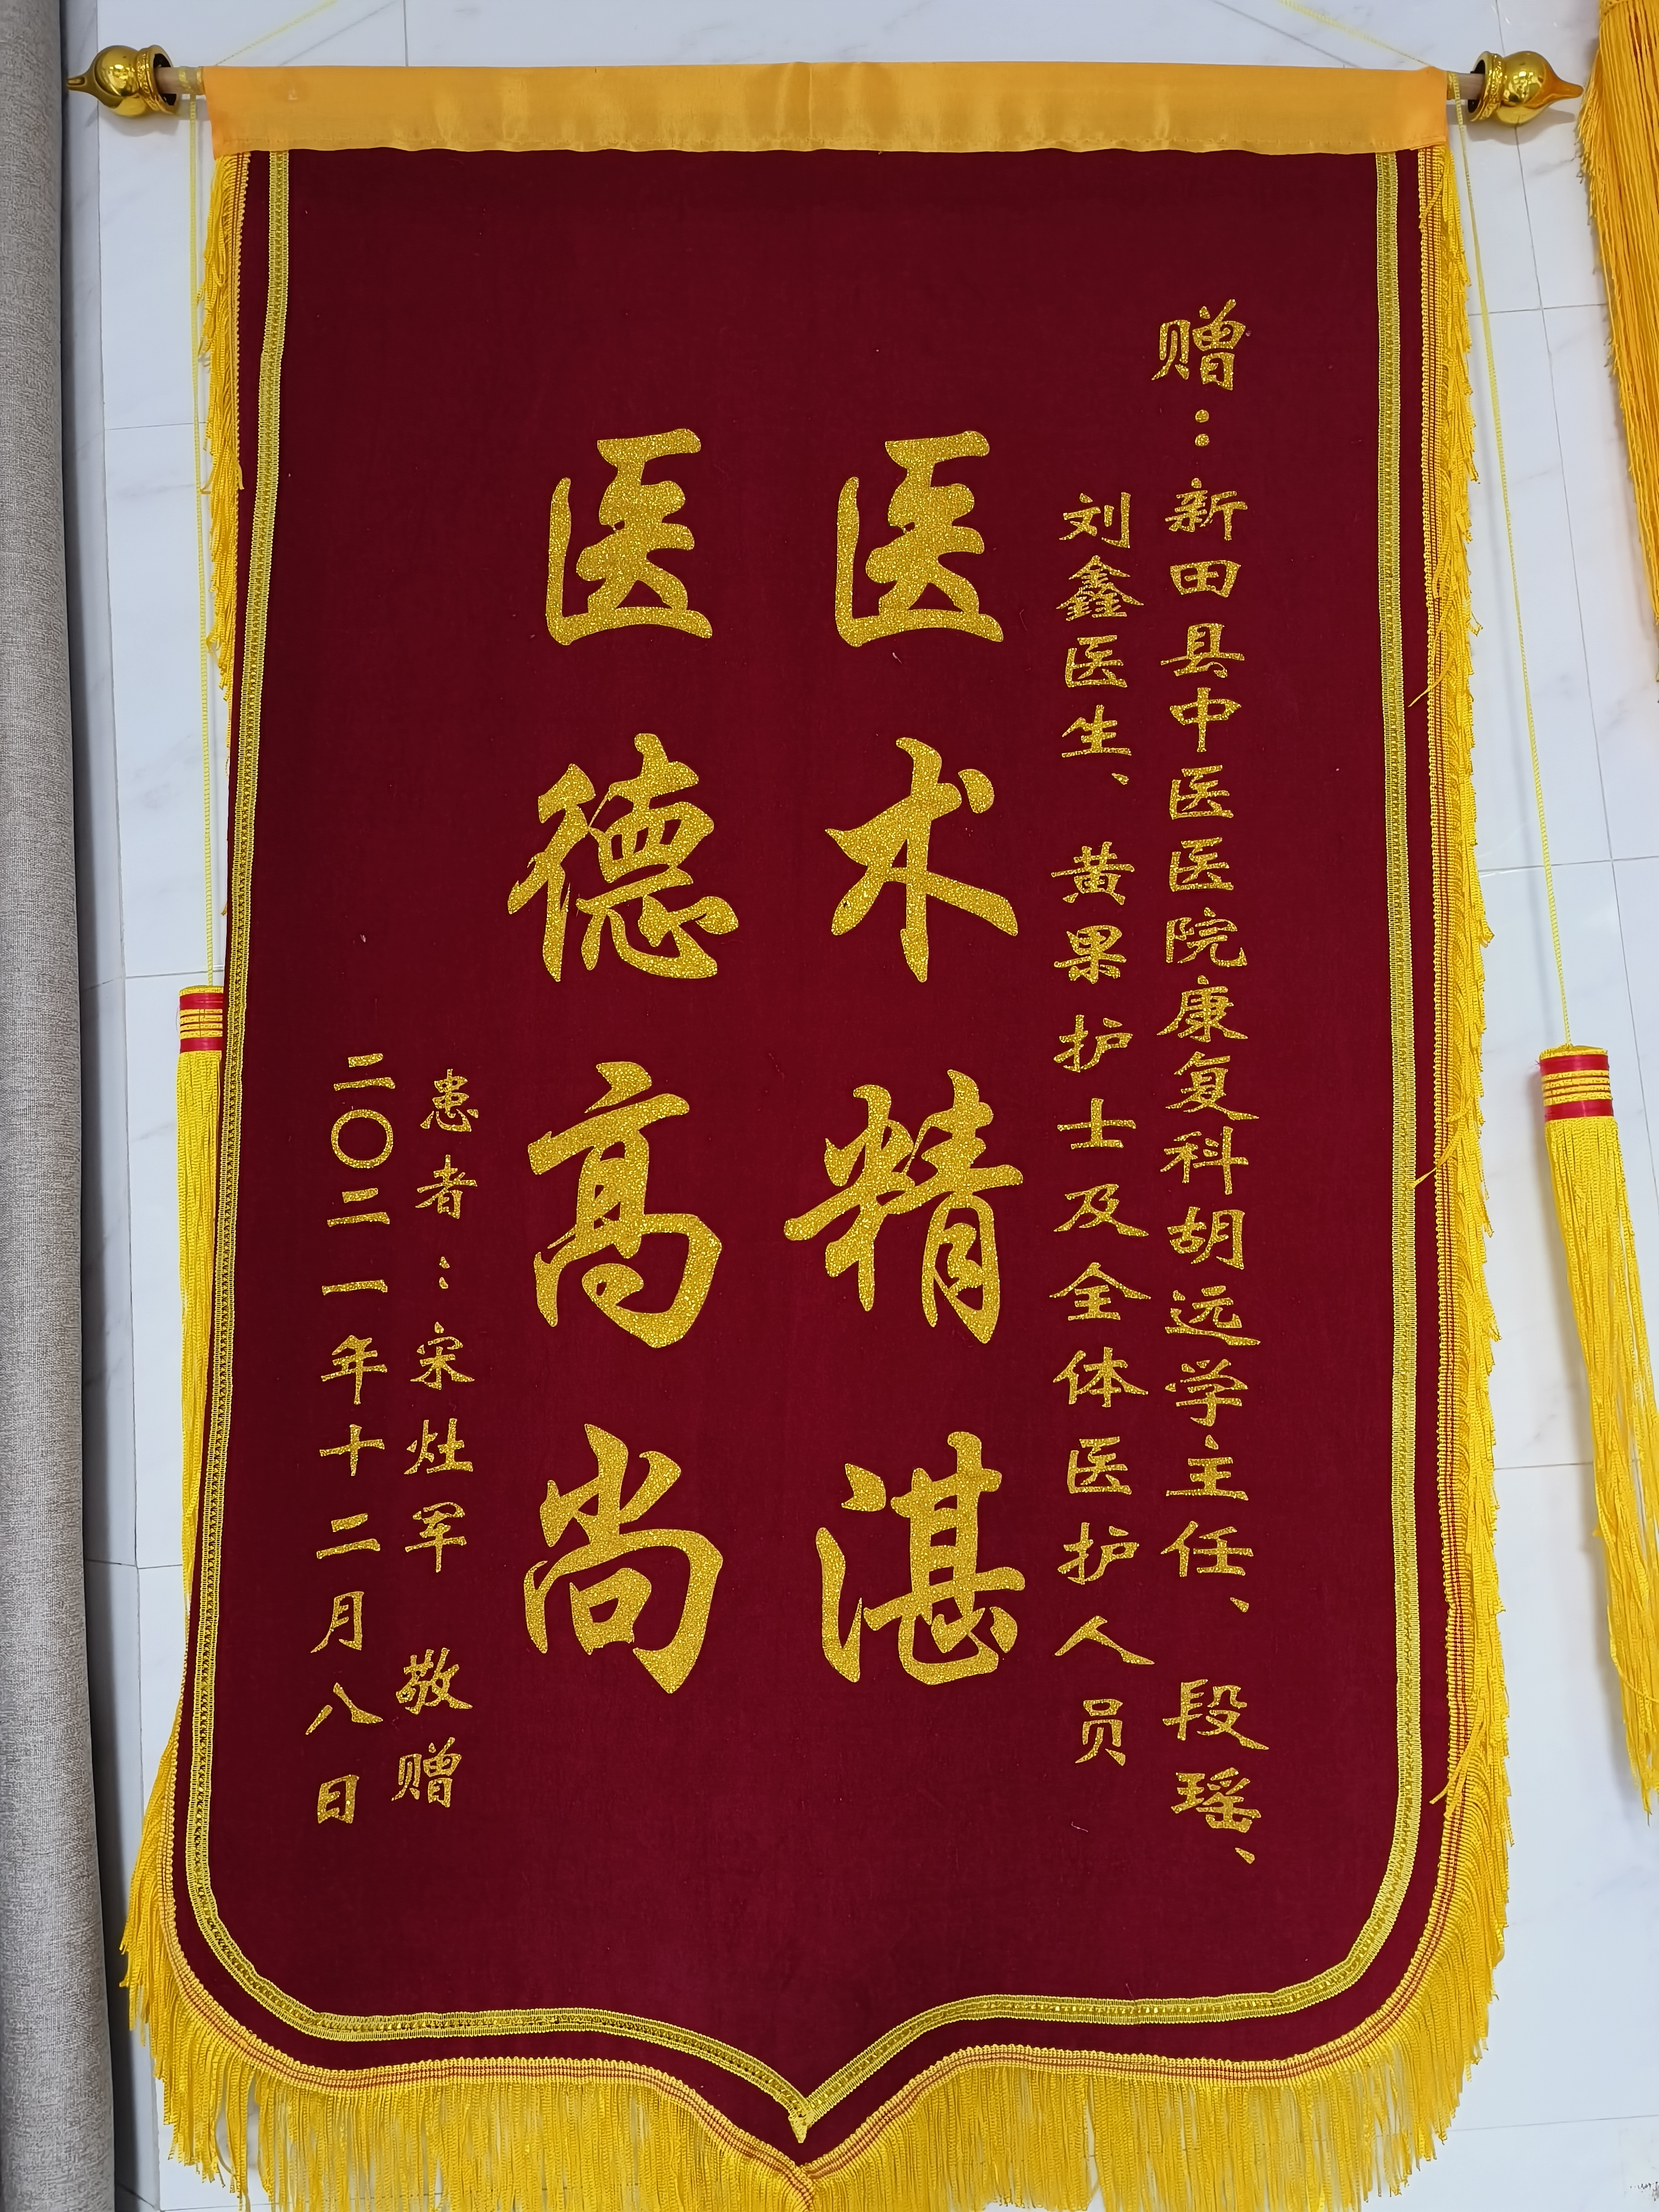 赠：新田县中医医院康复科胡远学主任、段瑶、
刘鑫医生、黄果护士及全体医护人员
医术精湛
医德高尚
患者：宋灶军 敬赠
二〇二一年十二月八日